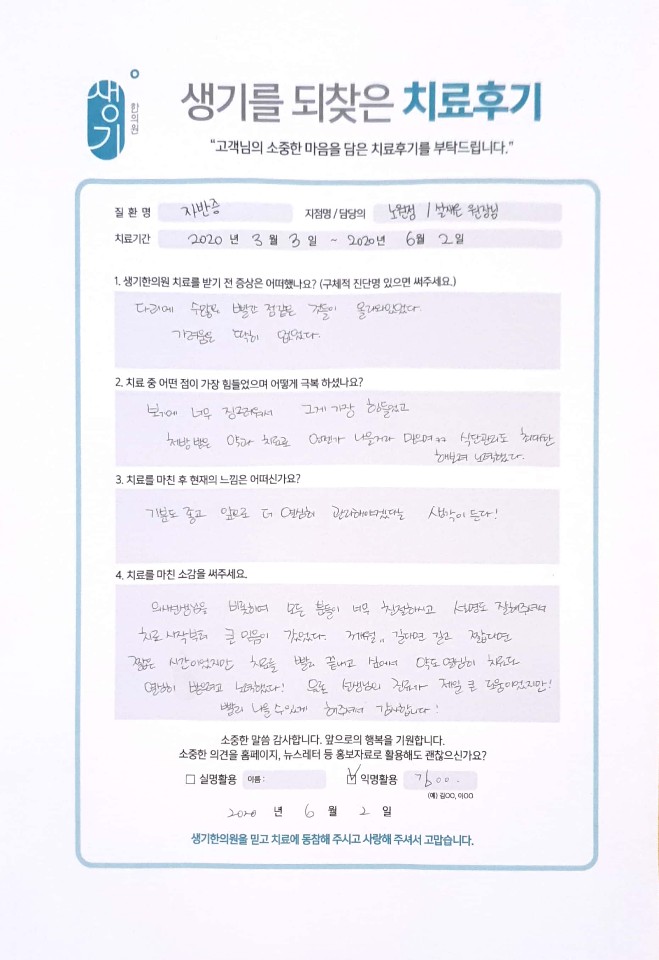 생기
한의원
생기를 되찾은 치료후기
“고객님의 소중한 마음을 담은 치료후기를 부탁드립니다.”
질 환 명 자반증 지점명 / 담당의 노원점 / 원장님
치료기간 2020 년 3 월 3 일 ~ 2020년 6월 2일
1. 생기한의원 치료를 받기 전 증상은 어떠했나요? (구체적 진단명 있으면 써주세요.)
다리에 수많은 빨간 점같은 것들이 올라와있었다.
가려움은 딱히 없었다.
2. 치료 중 어떤 점이 가장 힘들었으며 어떻게 극복 하셨나요?
보기에 너무 징그러워서 그게 가장 힘들었고
처방받은 약과 치료로 언젠가 나을거라 믿으며 식단관리도 최대한
해보려 노력했다.
3. 치료를 마친 후 현재의 느낌은 어떠신가요?
기분도 좋고 앞으로 더 열심히 관리해야겠다는 생각이 든다!
4. 치료를 마친 소감을 써주세요.
의사선생님을 비롯하여 모든 분들이 너무 친절하시고 설명도 잘해주셔서
치료 시작부터 큰 믿음이 갔었다. 3개월,, 길다면 길고 짧다면
짧은 시간이었지만 치료를 빨리 끝내고 싶어서 약도 열심히 치료도
열심히 받으려고 노력했다! 물론 선생님의 진료가 제일 큰 도움이었지만!
빨리 나을 수 있게 해주셔서 감사합니다!
소중한 말씀 감사합니다. 앞으로의 행복을 기원합니다.
소중한 의견을 홈페이지, 뉴스레터 등 홍보자료로 활용해도 괜찮으신가요?
실명활용 이름 : 익명활용 김○○.
(예) 김OO, 이OO
2020 년 6 월 2 일
생기한의원을 믿고 치료에 동참해 주시고 사랑해 주셔서 고맙습니다.